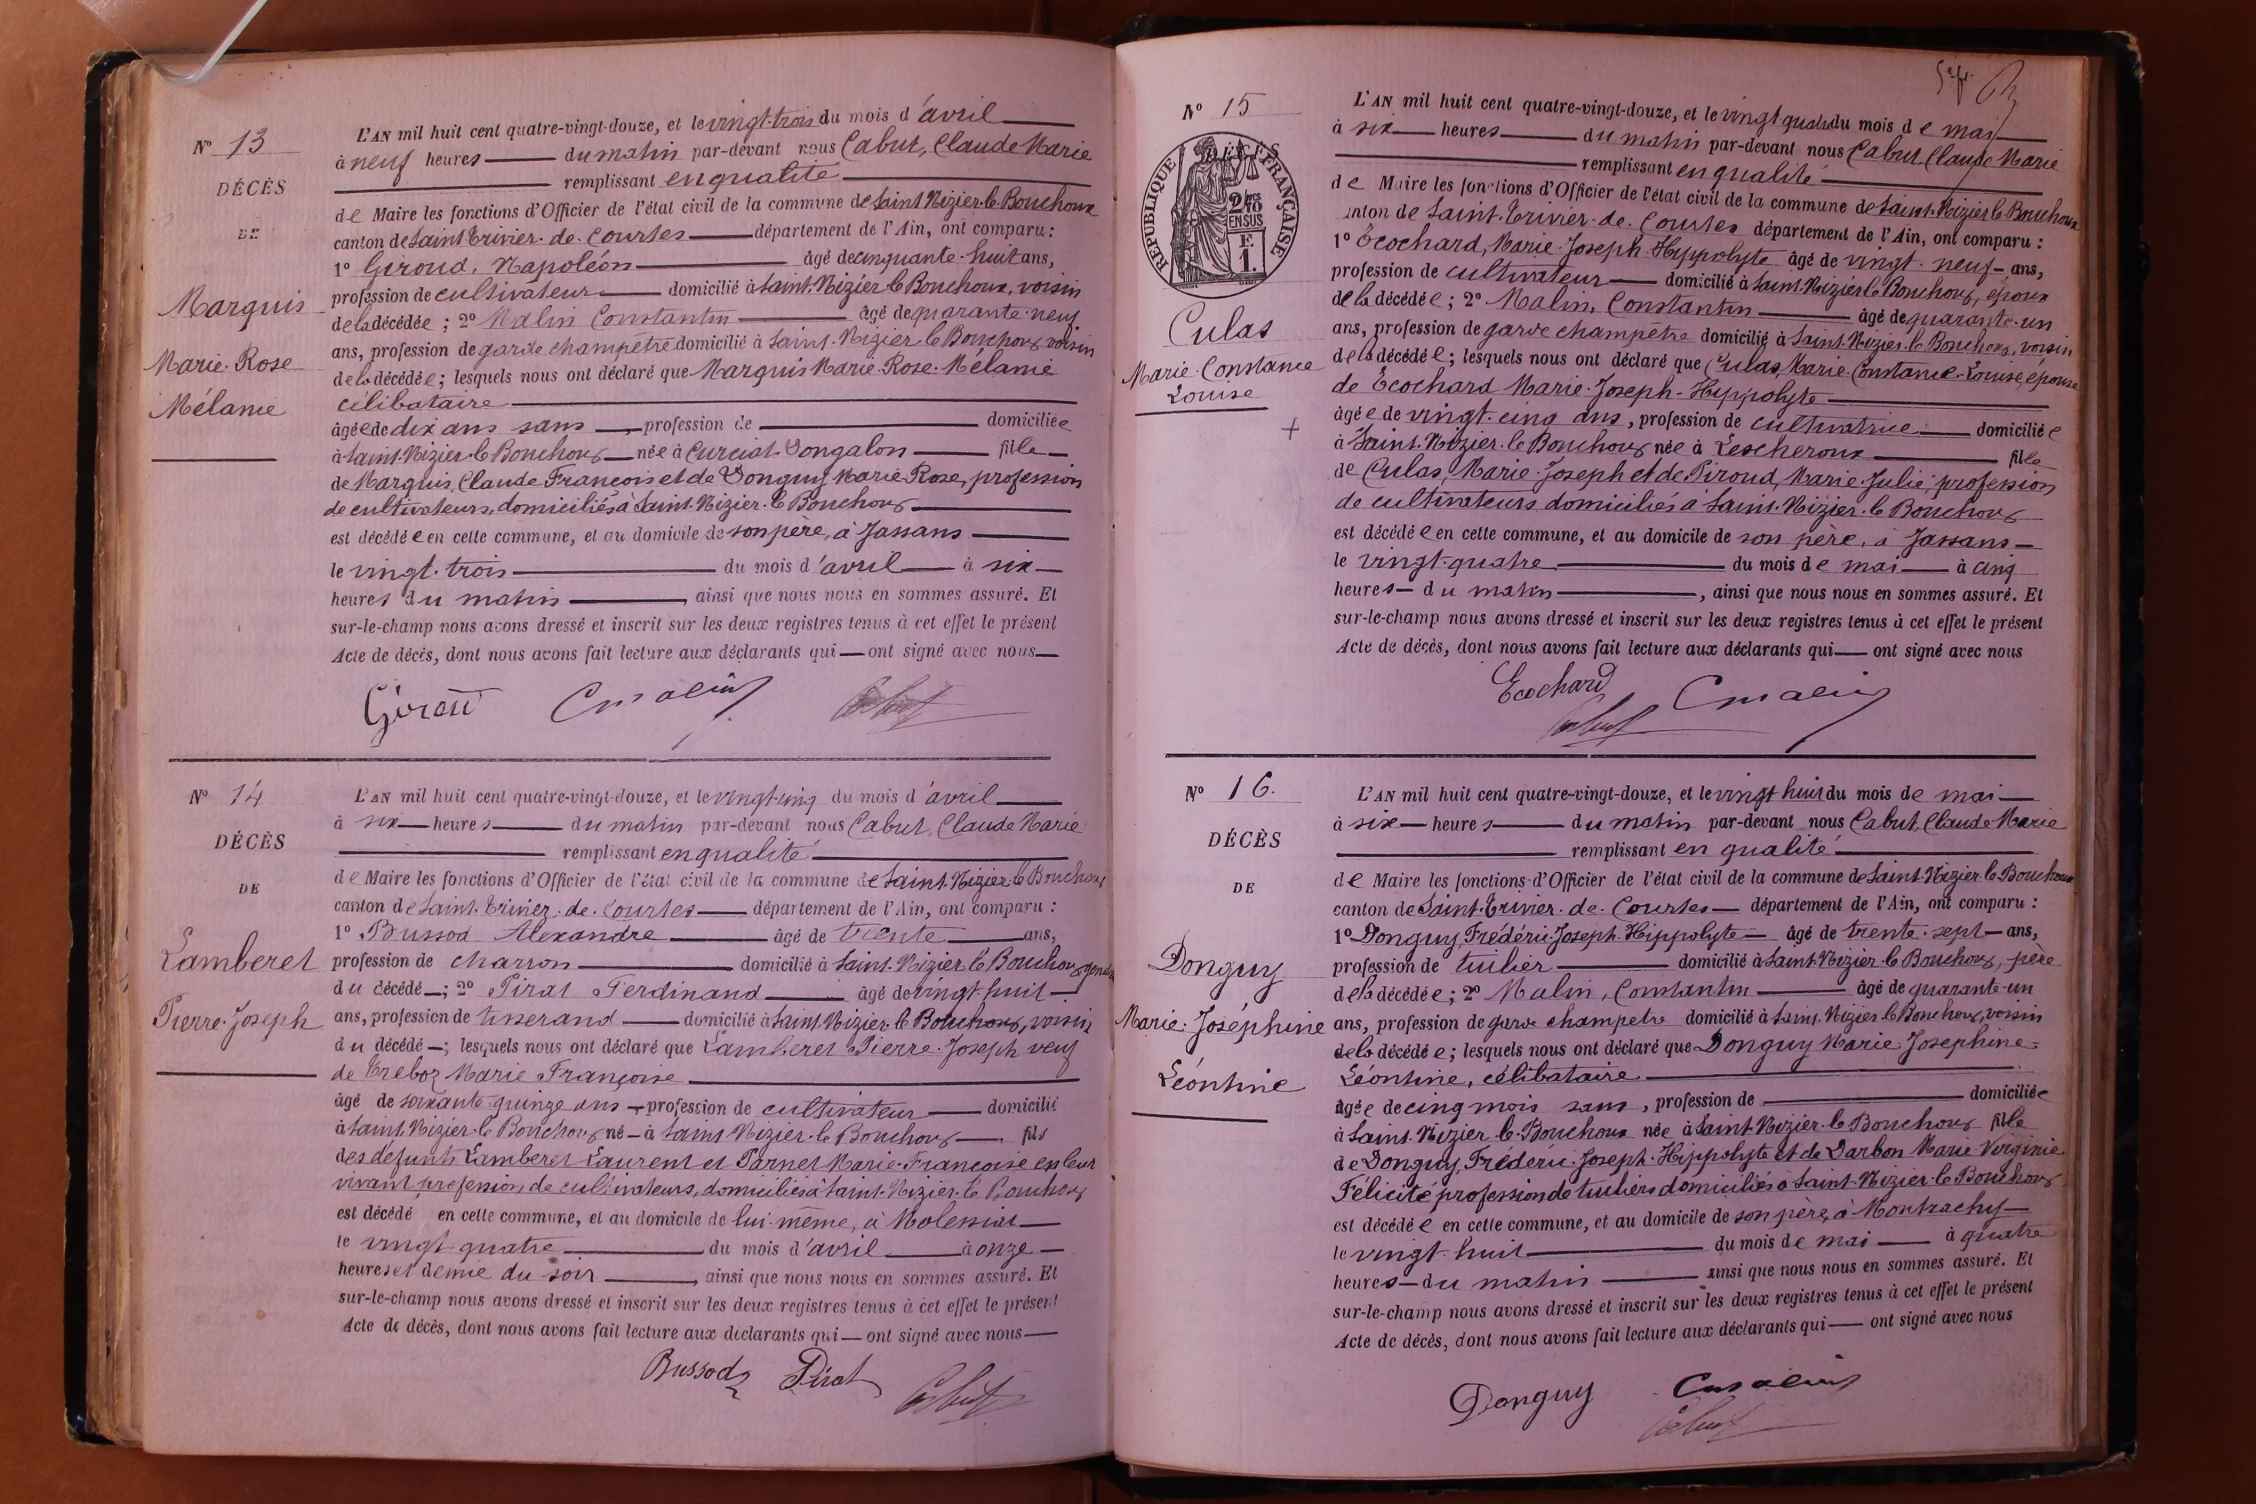 N° 13
DÉCÈS
DE
Marquis
Marie-Rose
Mélanie
L'AN mil huit cent quatre-vingt-douze, et le vingt-trois du mois d'avril
à neuf heures du matin par-devant nous Cabut, Claude Marie
remplissant en qualité
de Maire les fonctions d'Officier de l'état civil de la commune de Saint-Nizier-le-Bouchoux
canton de Saint-Trivier-de-Courtes département de l'Ain, ont comparu :
1° Giroud, Napoléon âgé de cinquante-huit ans,
profession de cultivateur domicilié à Saint-Nizier le Bouchoux, voisin
de la décédée ; 2° Malin Constantin âgé de quarante-neuf
ans, profession de garde champêtre domicilié à Saint-Nizier le Bouchoux voisin
de la décédée ; lesquels nous ont déclaré que Marquis Marie-Rose-Mélanie
célibataire
âgée de dix ans sans profession de domiciliée
à Saint-Nizier-le-Bouchoux née à Curciat-Dongalon fille
de Marquis, Claude François et de Donguy Marie-Rose, profession
de cultivateurs, domiciliés à Saint-Nizier-le Bouchoux
est décédée en cette commune, et au domicile de son père, à Jassans
le vingt-trois du mois d'avril à six
heures du matin, ainsi que nous nous en sommes assuré. Et
sur-le-champ nous avons dressé et inscrit sur les deux registres tenus à cet effet le présent
Acte de décès, dont nous avons fait lecture aux déclarants qui ont signé avec nous
Giroud Cmalin Cabut
N° 14
DÉCÈS
DE
Lamberet
Pierre-Joseph
L'AN mil huit cent quatre-vingt-douze, et le vingt-cinq du mois d'avril
à six heures du matin par-devant nous Cabut, Claude Marie
remplissant en qualité
de Maire les fonctions d'Officier de l'état civil de la commune de Saint-Nizier le Bouchoux
canton de Saint-Trivier-de-Courtes département de l'Ain, ont comparu :
1° Bussod Alexandre âgé de trente ans,
profession de charron domicilié à Saint-Nizier le Bouchoux gendre
du décédé ; 2° Pirat Ferdinand âgé de vingt-huit
ans, profession de tisserand domicilié à Saint-Nizier-le Bouchoux, voisin
du décédé ; lesquels nous ont déclaré que Lamberet Pierre-Joseph veuf
de Treboz Marie Françoise
âgé de soixante-quinze ans profession de cultivateur domicilié
à Saint-Nizier-le Bouchoux né à Saint Nizier-le Bouchoux fils
des défunts Lamberet Laurent et Parnet Marie-Françoise en leur
vivant profession de cultivateurs, domiciliés à Saint-Nizier-le Bouchoux
est décédé en cette commune, et au domicile de lui-même, à Molessiat
le vingt-quatre du mois d'avril à onze
heures et demie du soir, ainsi que nous nous en sommes assuré. Et
sur-le-champ nous avons dressé et inscrit sur les deux registres tenus à cet effet le présent
Acte de décès, dont nous avons fait lecture aux déclarants qui ont signé avec nous
Bussod Pirat Cabut
N° 15
DÉCÈS
RÉPUBLIQUE FRANÇAISE
2/10 EN SUS
F. 1.
Culas
Marie-Constance
Louise
L'AN mil huit cent quatre-vingt-douze, et le vingt quatre du mois de mai
à six heures du matin par-devant nous Cabut, Claude Marie
remplissant en qualité
de Maire les fonctions d'Officier de l'état civil de la commune de Saint-Nizier le Bouchoux
canton de Saint-Trivier-de-Courtes département de l'Ain, ont comparu :
1° Ecochard, Marie-Joseph-Hyppolyte âgé de vingt-neuf ans,
profession de cultivateur domicilié à Saint-Nizier le Bouchoux, époux
de la décédée ; 2° Malin, Constantin âgé de quarante-un
ans, profession de garde champêtre domicilié à Saint-Nizier-le Bouchoux, voisin
de la décédée ; lesquels nous ont déclaré que Culas, Marie-Constance-Louise, épouse
de Ecochard Marie-Joseph-Hyppolyte
âgée de vingt-cinq ans, profession de cultivatrice domiciliée
à Saint-Nizier-le Bouchoux née à Lescheroux fille
de Culas, Marie-Joseph et de Piroud, Marie-Julie, profession
de cultivateurs domiciliés à Saint-Nizier-le Bouchoux
est décédée en cette commune, et au domicile de son père, à Jassans
le vingt-quatre du mois de mai à cinq
heures du matin, ainsi que nous nous en sommes assuré. Et
sur-le-champ nous avons dressé et inscrit sur les deux registres tenus à cet effet le présent
Acte de décès, dont nous avons fait lecture aux déclarants qui ont signé avec nous
Ecochard Cmalin
Cabut
N° 16.
DÉCÈS
DE
Donguy
Marie-Joséphine
Léontine
L'AN mil huit cent quatre-vingt-douze, et le vingt huit du mois de mai
à six heures du matin par-devant nous Cabut, Claude Marie
remplissant en qualité
de Maire les fonctions d'Officier de l'état civil de la commune de Saint-Nizier-le Bouchoux
canton de Saint-Trivier-de-Courtes département de l'Ain, ont comparu :
1° Donguy, Frédéric-Joseph-Hippolyte âgé de trente-sept ans,
profession de tuilier domicilié à Saint-Nizier-le Bouchoux, père
de la décédée ; 2° Malin, Constantin âgé de quarante-un
ans, profession de garde champetre domicilié à Saint-Nizier le Bouchoux, voisin
de la décédée ; lesquels nous ont déclaré que Donguy Marie-Josephine-
Léontine, célibataire
âgée de cinq mois sans, profession de domiciliée
à Saint-Nizier-le-Bouchoux née à Saint-Nizier-le Bouchoux fille
de Donguy, Frédéric-Joseph-Hippolyte et de Darbon Marie Virginie
Félicité profession de tuiliers domiciliés à Saint-Nizier-le Bouchoux
est décédée en cette commune, et au domicile de son père, à Montrachy
le vingt-huit du mois de mai à quatre
heures du matin ainsi que nous nous en sommes assuré. Et
sur-le-champ nous avons dressé et inscrit sur les deux registres tenus à cet effet le présent
Acte de décès, dont nous avons fait lecture aux déclarants qui ont signé avec nous
Donguy Cmalin
Cabut